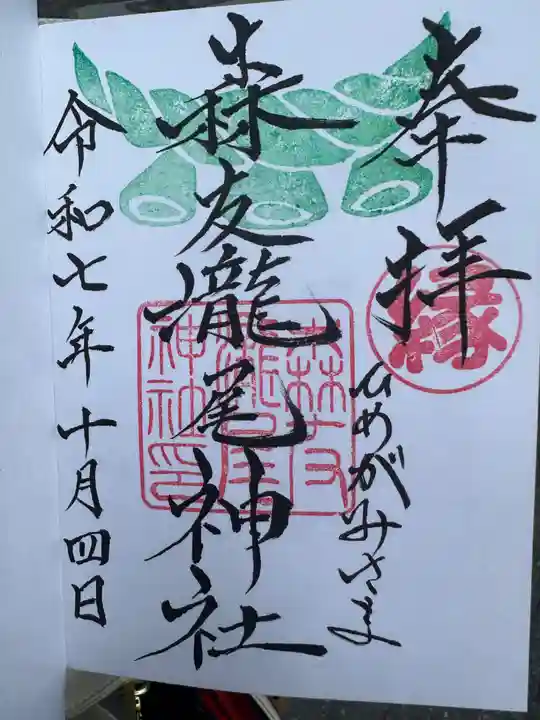 奉拝
ひめがみさま
森友瀧尾神社
森友
瀧尾
神社印
令和七年十月四日